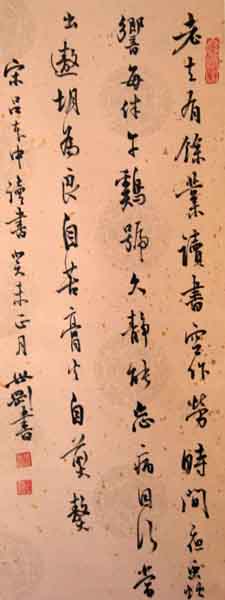 老去有餘業讀書空作勞時聞夜蟲
響每伴午鷄號久靜能忘病因行當
出遨胡為良自苦膏火自煎熬
宋吕本中读書癸未正月世書